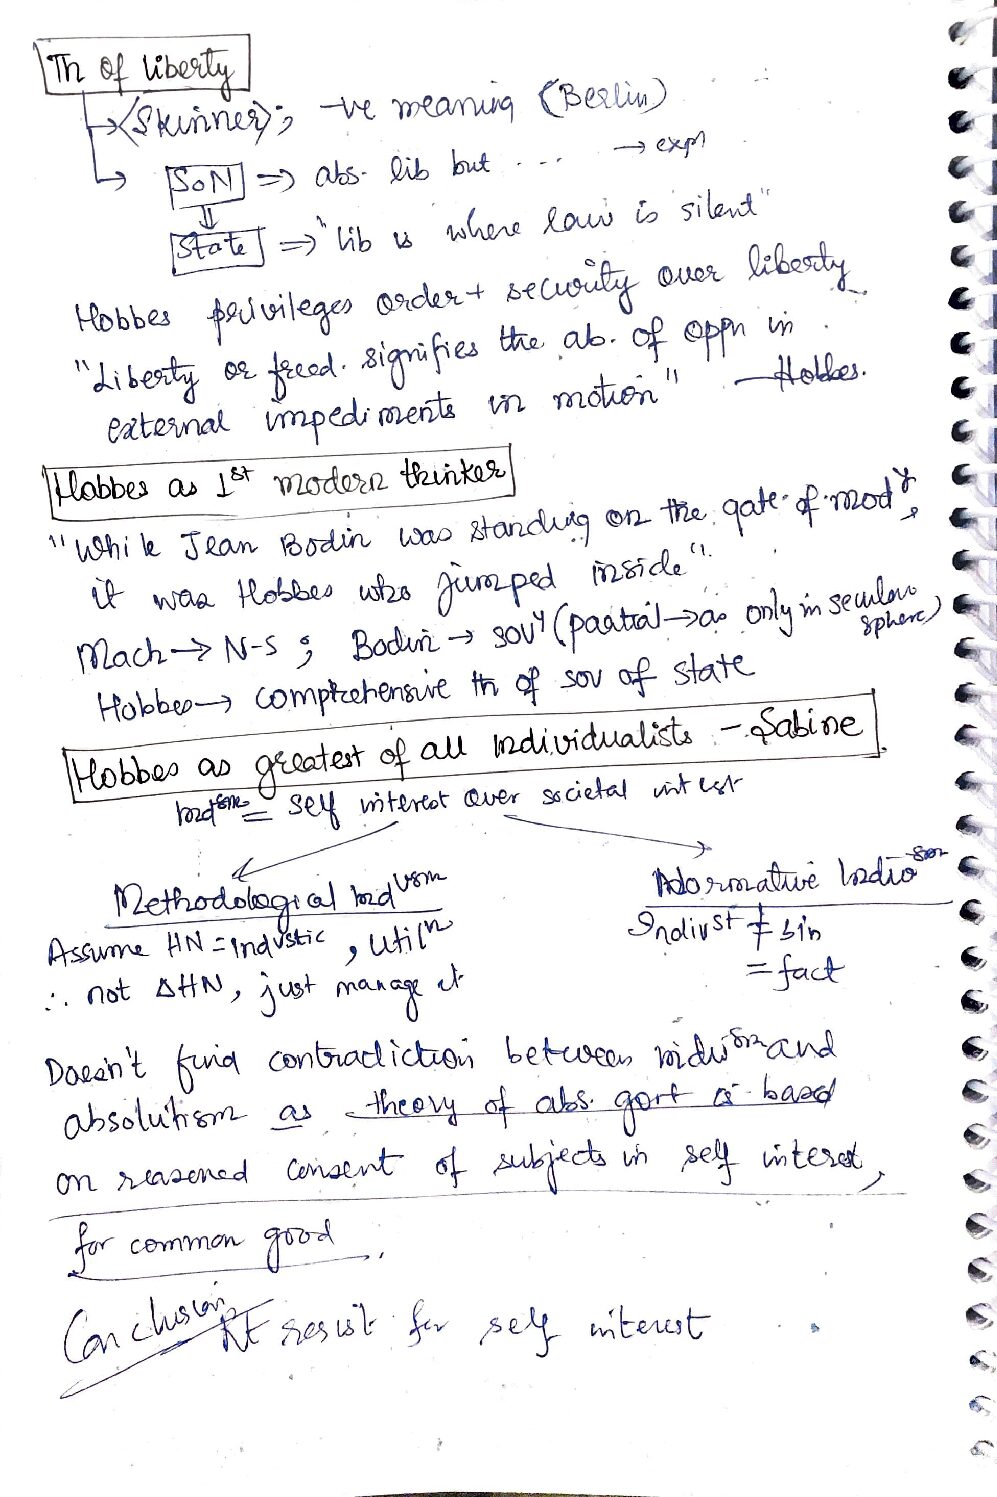 Th of liberty
→ <Skinner>; -ve meaning (Berlin)
→ SoN ⇒ abs. lib but .... → expn
⇓
State ⇒ "lib is where law is silent"
Hobbes privileges order + security over liberty
"Liberty or freed. signifies the ab. of oppn in
external impediments in motion" —Hobbes.
Hobbes as 1st modern thinker
"While Jean Bodin was standing on the gate of mody,
it was Hobbes who jumped inside".
Mach → N-S; Bodin → sovy (partial → as only in secular sphere)
Hobbes → comprehensive th of sov of state
Hobbes as greatest of all individualists - Sabine
indsm = self interest over societal intest
Methodological indvsm
Normative Indivsm
Assume HN = Indvstic, utiln
Indivst ≠ sin
∴ not ΔHN, just manage it
= fact
Doesn't find contradiction between indivsm and
absolutism as theory of abs. govt is based
on reasoned consent of subjects in self interest,
for common good.
Conclusion Rt resist for self interest